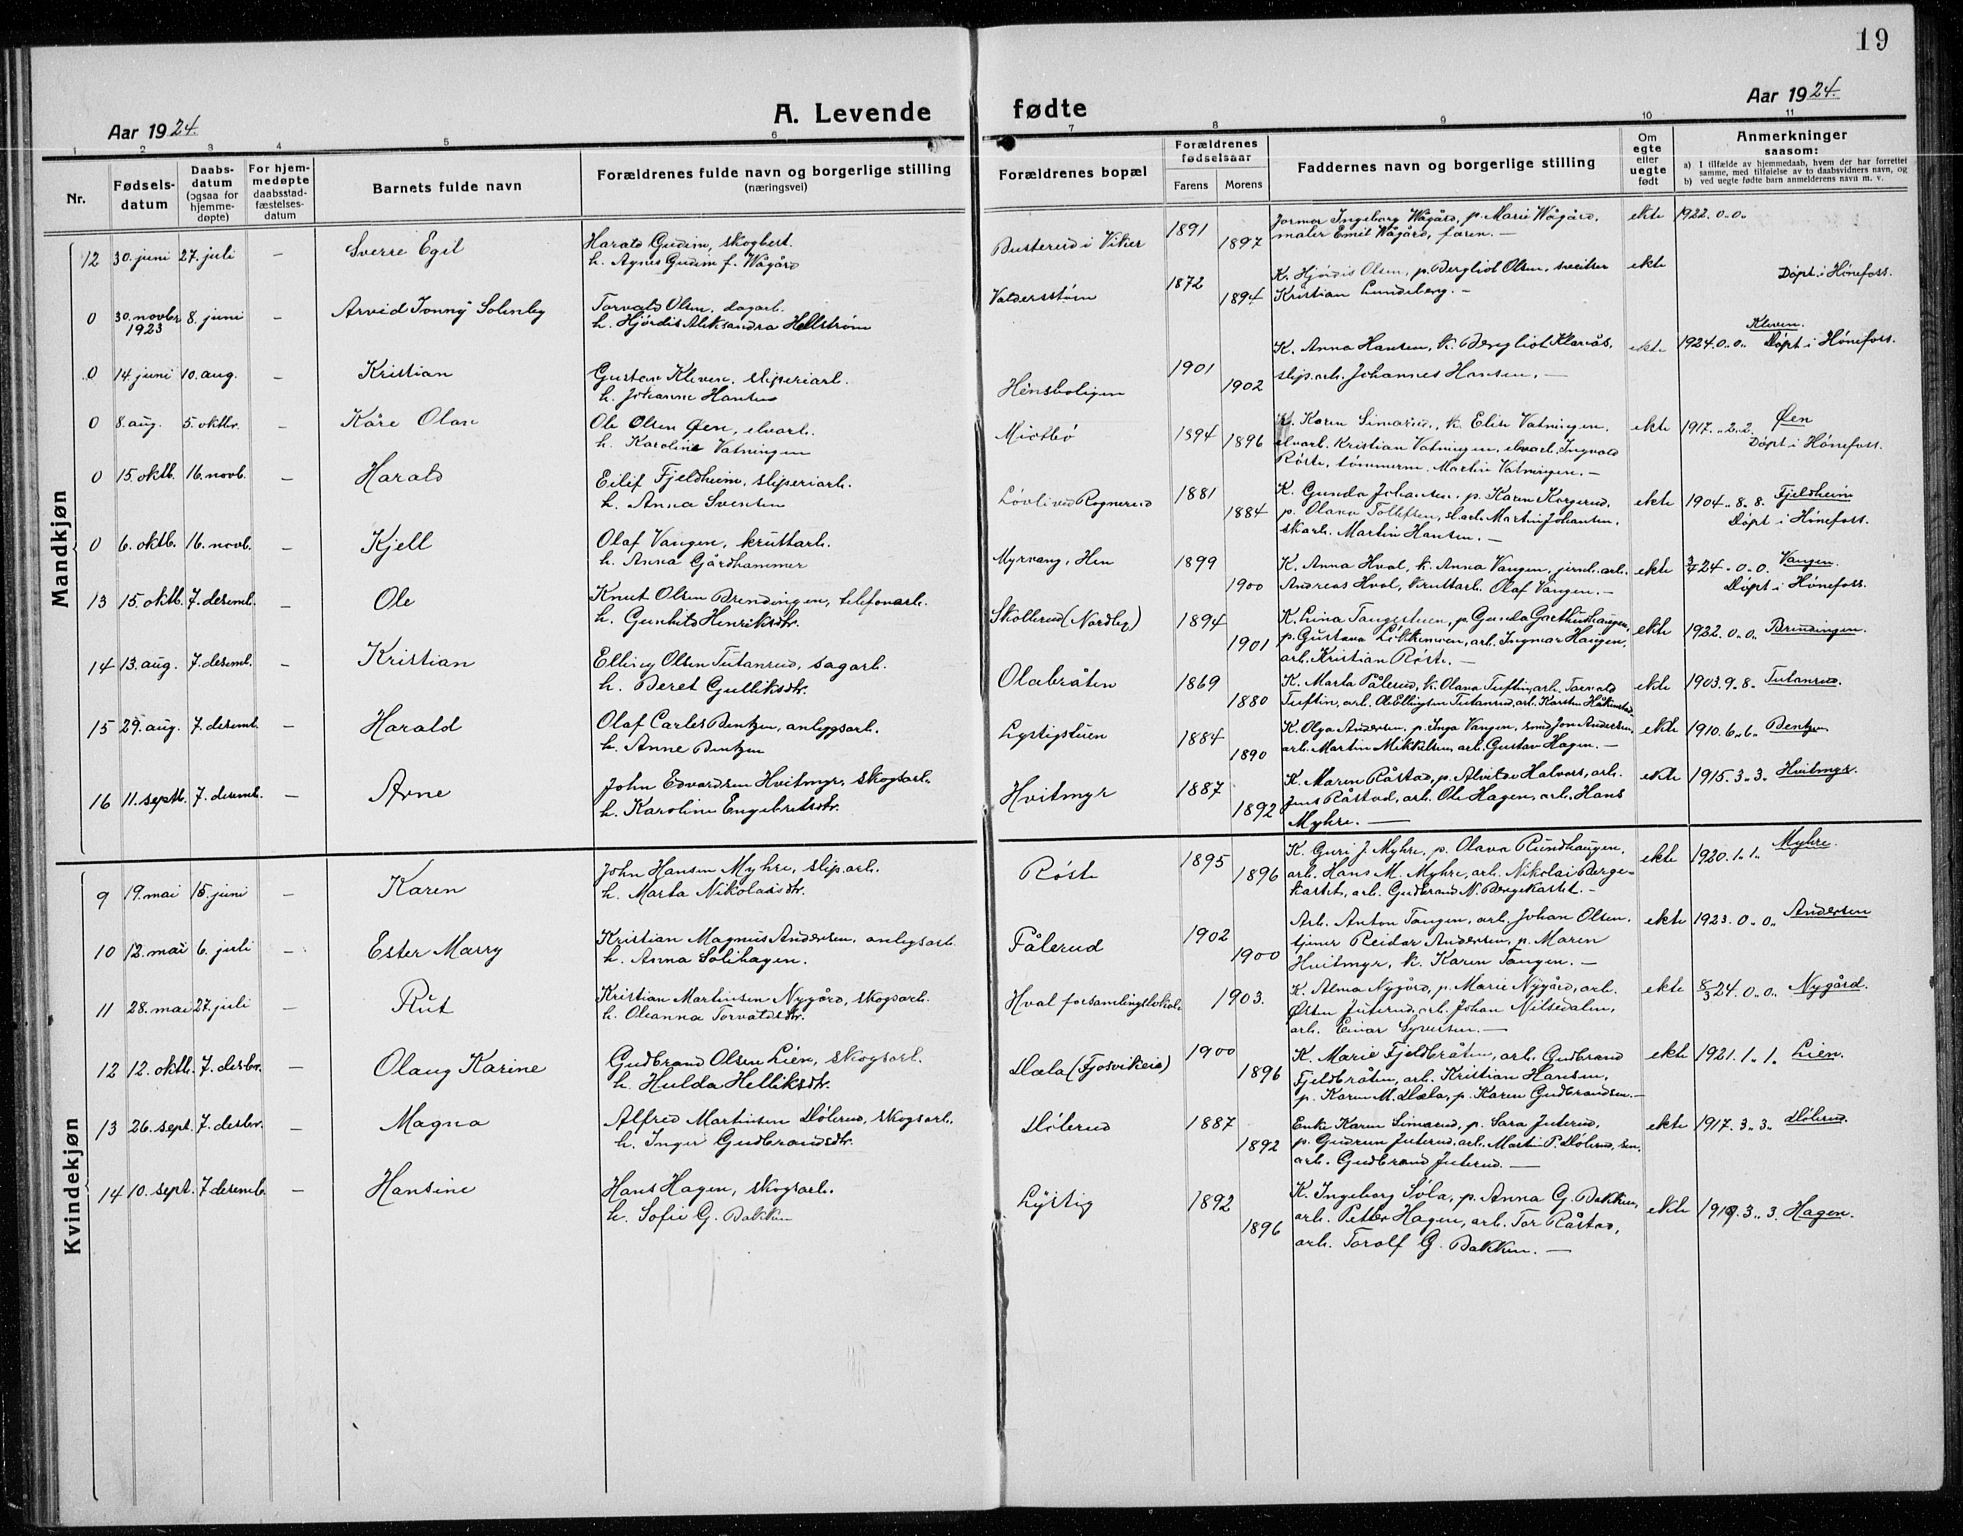 19
Aar 1924.
A. Levende fødte
Aar 1924.
1 2 3 4 5 6 7 8 9 10 11
Nr.
Fødsels-
datum
Daabs-
datum
(ogsaa for
hjemme-
døpte)
For hjem-
medøpte
daabsstad-
fæstelses-
datum
Barnets fulde navn
Forældrenes fulde navn og borgerlige stilling
(næringsvei)
Forældrenes bopæl
Forældrenes
fødselsaar
Farens Morens
Faddernes navn og borgerlige stilling
Om
egte
eller
uegte
født
Anmerkninger
saasom:
a) I tilfælde av hjemmedaab, hvem der har forrettet
samme, med tilføielse av to daabsvidners navn, og
b) ved uegte fødte barn anmelderens navn m. v.
Mandkjøn
12 30. juni 27. juli – Sverre Egil
Harald Gudim, skogbest.
h. Agnes Gudim f. Wågård
i Viker 1891 1897
Jormor Ingeborg Wågård, p. Marie Wågård,
maler Emil Wågård, faren. –
ekte 1922. 0. 0.
0 30. novbr. 1923 8. juni – Arvid Jonny Solenby
Torvald Olsen, dagarb.
h. Hjørdis Aleksandra Hellstrøm
Valdersstøen 1872 1894
K. Hjørdis Olsen, p. Bergliot Olsen, sveitser
Kristian Lundeberg. –
ekte Døpt i Hønefoss.
0 14. juni 10. aug. – Kristian
Gustav Kleven, sliperiarb.
h. Johanne Hansen
Hensboligen 1901 1902
K. Anna Hansen, k. Bergliot Klariås,
slip.arb. Johannes Hansen. –
ekte 1924. 0. 0. Kleven.
Døpt i Hønefoss.
0 8. aug. 5. oktbr. – Kåre Olav
Ole Olsen Øen, elvarb.
h. Karoline Vatningen
1894 1896
K. Karen Simarud, k. Elise Vatningen,
elvarb. Kristian Vatningen, elvarb. Ingvald
Røste, tømmerm. Martin Vatningen. –
ekte 1917. 2. 2. Øen
Døpt i Hønefoss.
0 15. oktb. 16. novb. – Harald
Eilif Fjeldheim, sliperiarb.
h. Anna Svensen
Løvli ved Rognerud 1881 1884
K. Gunda Johansen, p. Karen Korgerud,
p. Olava Tollefsen, sl.arb. Martin Johansen,
sk.arb. Martin Hansen. –
ekte 1904. 8. 8. Fjeldheim
Døpt i Hønefoss.
0 6. oktb. 16. novb. – Kjell
Olaf Vangen, kruttarb.
h. Anna Gårdhammer
Myrvang, Hen 1899 1900
K. Anna Hval, k. Anna Vangen, jernb.arb.
Andreas Hval, kruttarb. Olaf Vangen. –
ekte 24. 0. 0. Vangen.
Døpt i Hønefoss.
13 15. oktb. 7. desemb. – Ole
Knut Olsen Brendingen, telefonarb.
h. Gunhild Henriksdtr.
Skollerud (Nordby) 1894 1901
K. Lina Tangestuen, p. Gunda Garthushaugen,
p. Gustava Løkkemoen, arb. Ingmar Haugen,
arb. Kristian Røste. –
ekte 1922. 0. 0. Brendingen.
14 13. aug. 7. desemb. – Kristian
Elling Olsen Tutanrud, sagarb.
h. Beret Gulliksdtr.
Olabråten 1869 1880
K. Marta Pålerud, k. Olava Tuftin, arb. Torvald
Tuftin, arb. Ole Ellingsen Tutanrud, arb. Karsten
ekte 1903. 9. 8. Tutanrud.
15 29. aug. 7. desemb. – Harald
Olaf Carlos Bentzen, anleggsarb.
h. Anne Bentzen
Lystigstuen 1884 1890
K. Olga Andersen, p. Inga Vangen, smed Jon Andersen,
arb. Martin Mikkelsen, arb. Gustav Hagen. –
ekte 1910. 6. 6. Bentzen
16 11. septb. 7. desemb. – Arne
John Edvardsen Hvitmyr, skogsarb.
h. Karoline Engebretsdtr.
Hvitmyr 1887 1892
K. Maren Råstad, p. Alvilde Halvors, arb.
Jens Råstad, arb. Ole Hagen, arb. Hans
Myhre. –
ekte 1915. 3. 3. Hvitmyr.
Kvindekjøn
9 19. mai 15. juni – Karen
John Hansen Myhre, slip.arb.
h. Marta Nikolaisdtr.
Røste 1895 1896
K. Guri J. Myhre, p. Olava Rundhaugen,
arb. Hans M. Myhre, arb. Nikolai Berge-
kastet, arb. Gudbrand N. Bergekastet. –
ekte 1920. 1. 1. Myhre.
10 12. mai 6. juli – Ester Marry
Kristian Magnus Andersen, anlegsarb.
h. Anna Solihagen.
Pålerud 1902 1900
Arb. Anton Tangen, arb. Johan Olsen,
tjener Reidar Andersen, p. Maren
Hvitmyr, k. Karen Tangen. –
ekte 1923. 0. 0. Andersen
11 28. mai 27. juli – Rut
Kristian Martinsen Nygård, skogsarb.
h. Oleanna Torvaldsdtr.
Hval forsamlingslokale 1903.
K. Alma Nygård, p. Marie Nygård, arb.
Østen Juterud, arb. Johan Nilsedalen,
arb. Einar Syversen. –
ekte 8/3 24. 0. 0. Nygård.
12 12. oktb. 7. desbr. – Olaug Karine
Gudbrand Olsen Lien, skogsarb.
h. Hulda Helliksdtr.
Dæla (Fjosvikeie) 1900 1896
K. Marie Fjeldbråten, arb. Gudbrand
Fjeldbråten, arb. Kristian Hansen,
p. Karen M. Dæla, p. Karen Gudbrandsen. –
ekte 1921. 1. 1. Lien.
13 26. sept. 7. desbr. – Magna
Alfred Martinsen Dølerud, skogsarb.
h. Inger Gudbrandsdtr.
Dølerud 1887 1892
Enke Karen Simarud, p. Sara Juterud,
p. Gudrun Juterud, arb. Martin P. Dølerud, sen.
arb. Gudbrand Juterud. –
ekte 1917. 3. 3. Dølerud.
14 10. sept. 7 desemb. – Hansine
Hans Hagen, skogsarb.
h. Sofie G. Bakken
Lystig 1892 1896
K. Ingeborg Søla, p. Anna G. Bakken,
arb. Petter Hagen, arb. Tor Råstad,
arb. Torolf G. Bakken. –
ekte 1919. 3. 3. Hagen.